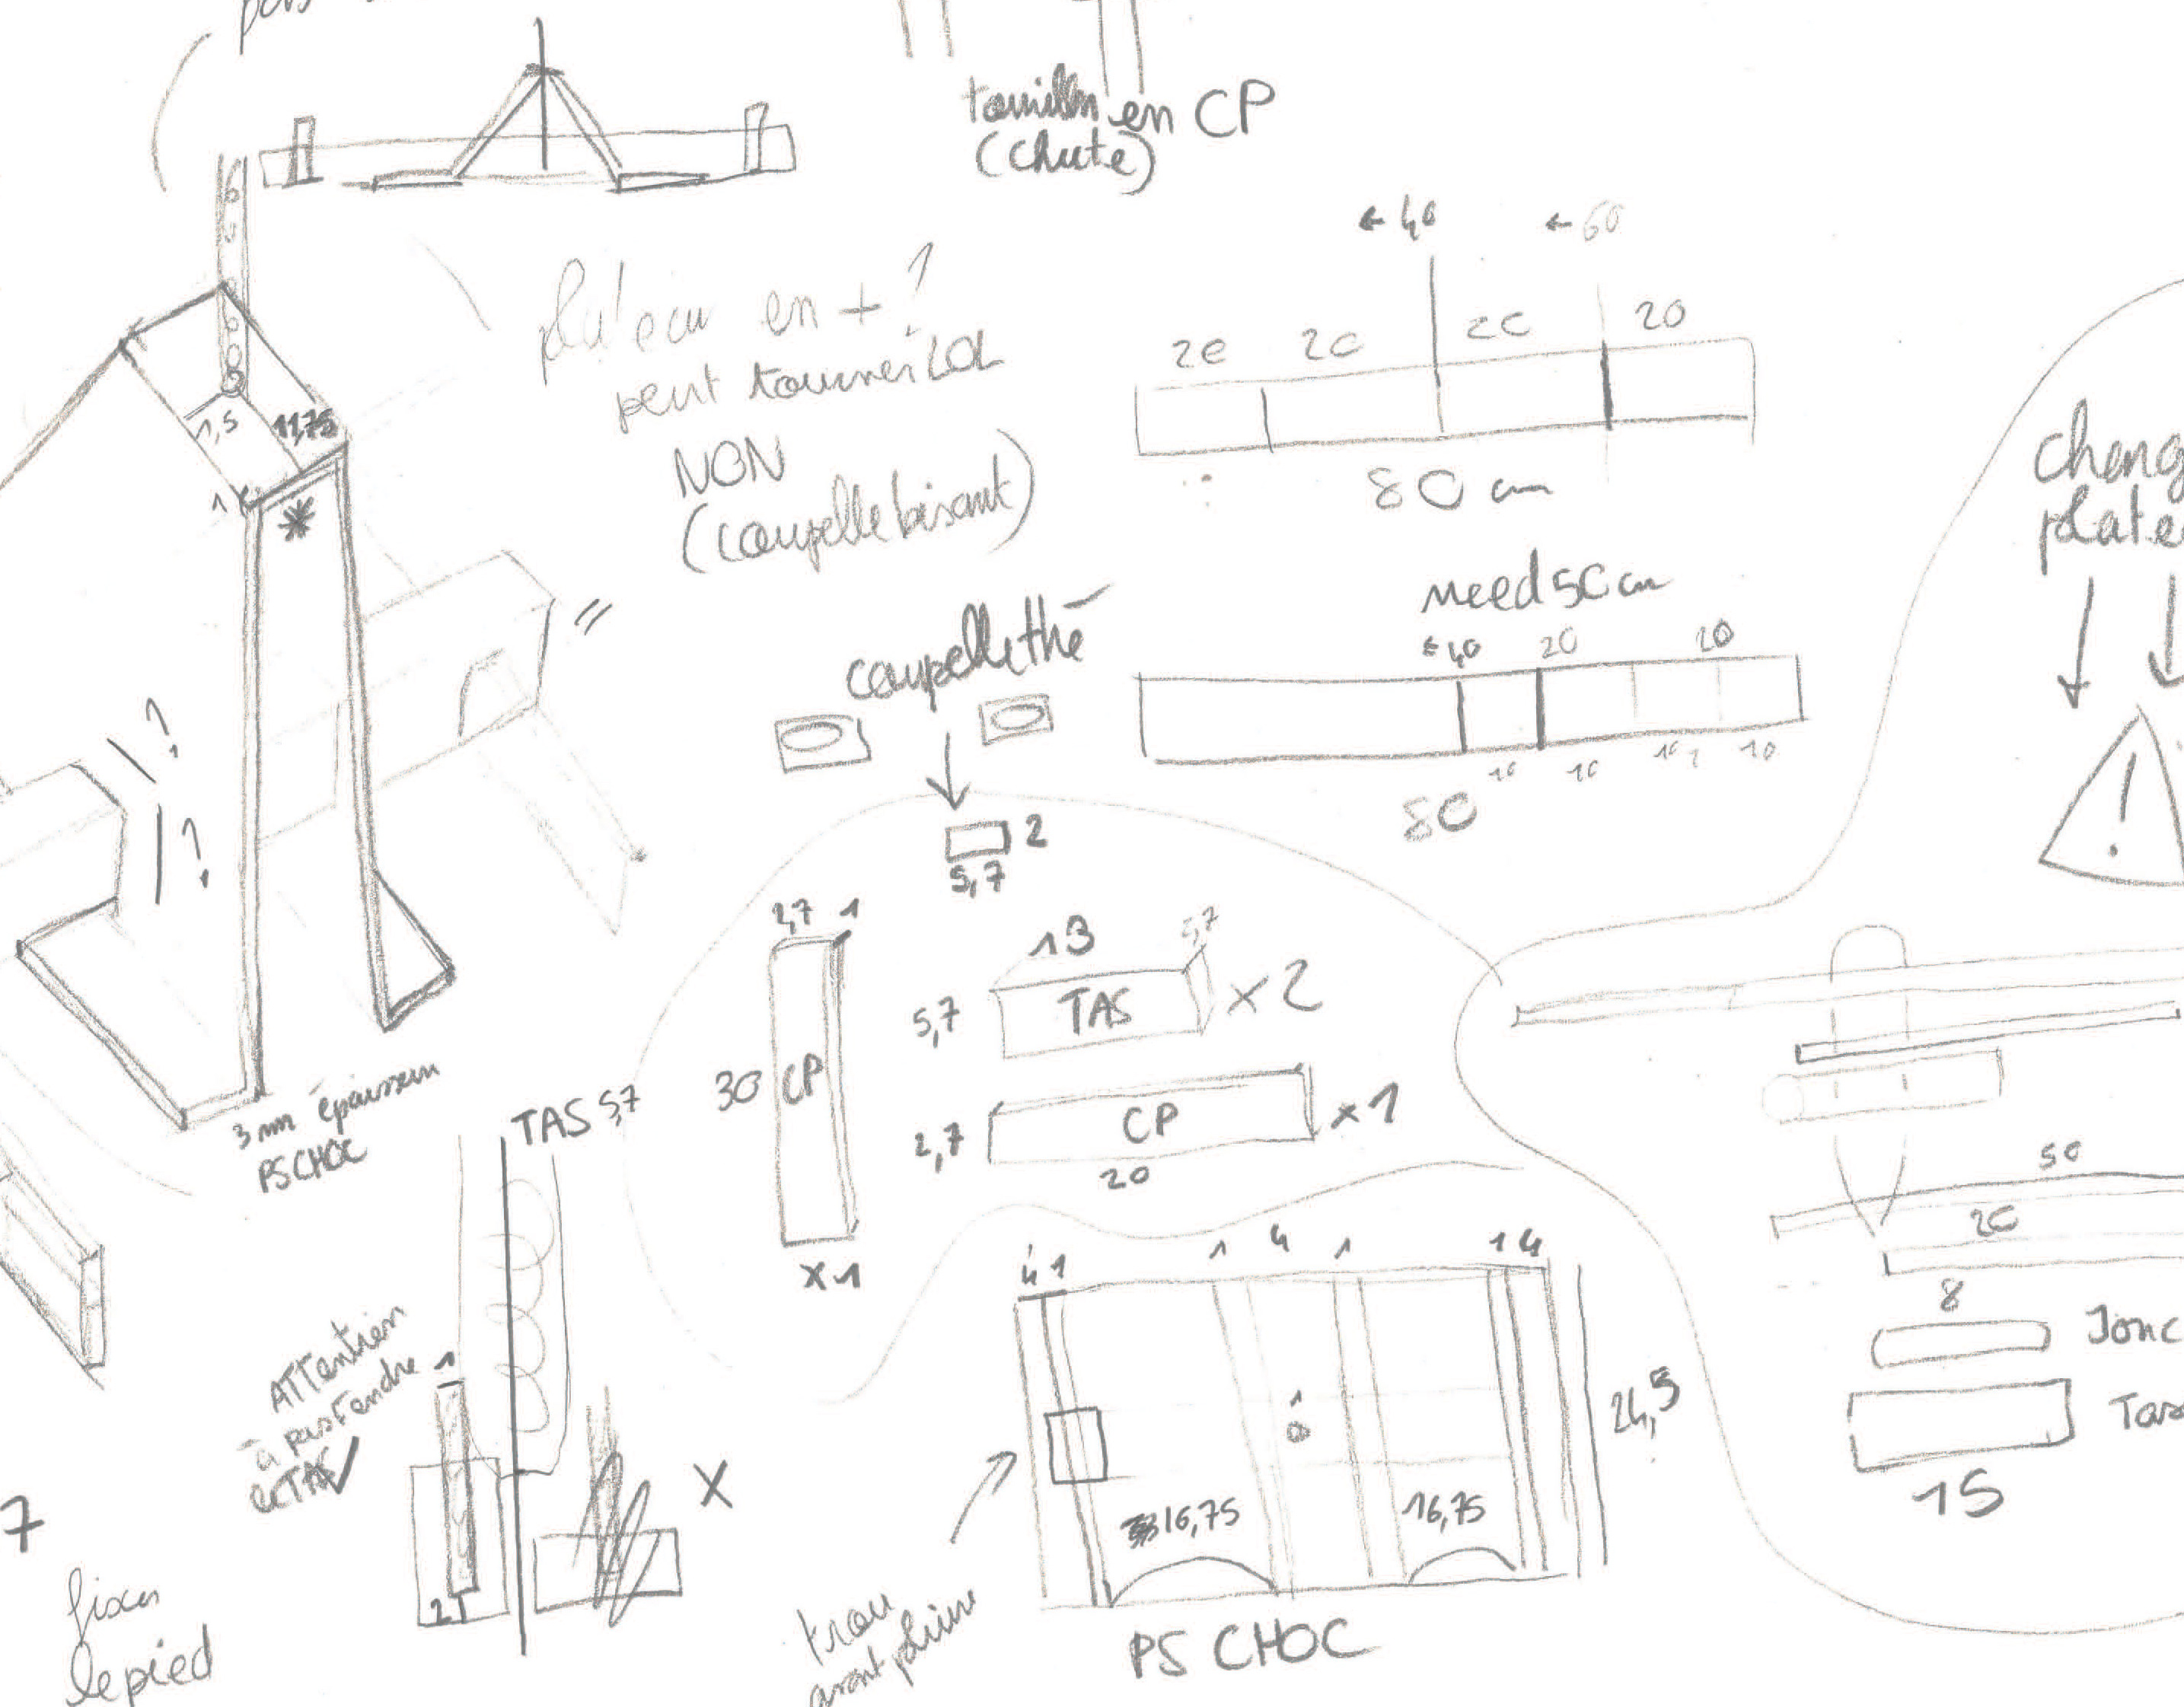 en CP
(chute)
← 40
← 60
20
20
20
20
80 cm
en + ?
peut tourner LOL
NON
1,5
11,75
1
*
need 50 cm
← 40
20
20
10
10
10
10
80
coupelle thé
2
5,7
? 
?
!
2,7
1
30
CP
x1
13
5,7
5,7
TAS
x2
2,7
CP
x1
20
3 mm épaisseur
PS CHOC
TAS 5,7
Attention
à pas fendre
le TAS
1
X
4 1
1 4 1
1 4
1
24,5
16,75
16,75
trou
avant pliure
PS CHOC
50
20
8
Jonc
Tas
15
7
fixer
le pied